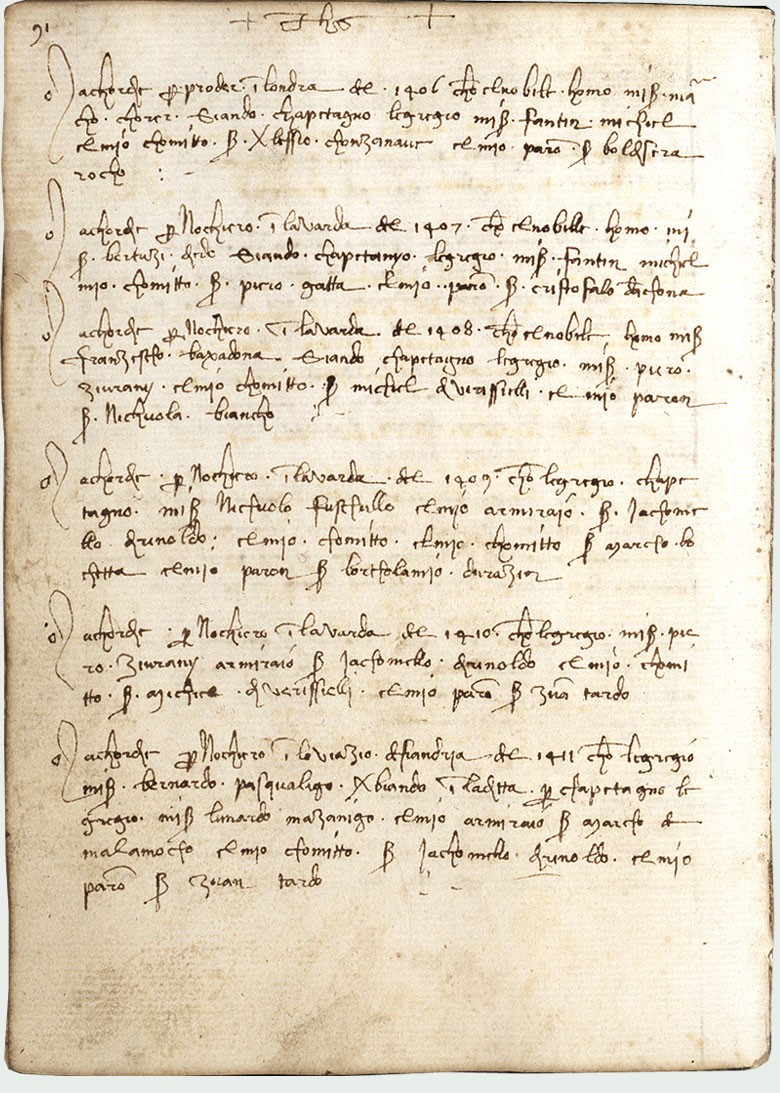 + Ihs +
achorde per proder ī londra del 1406 chō elnobelle homo miß ma
cho chorer siando chapetagno legregio miß fantin michiel
elmio chomitto ß Xlessio chonzanave elmio parō ß boldisera
rocho
achorde per Nochiero ī lavarda del 1407 chō elnobelle homo mi
ß bertuzi diedo siando chapetanio legregio miß fantin michiel
mio chomitto ß piero gatta elmio parō ß cristofalo
achorde per Nochiero ī lavarda del 1408 chō elnobelle homo miß
franzescho baxadona siando chapetagno legregio miß piero
ziurany elmio chomitto ß michiel d verissielli el mio paron
ß Nichuola biancho
achorde per Nochiero ī lavarda del 1409 chō legregio chape
tagno miß Nichuolo fuschullo elmio armiraio ß Jachome
llo drinoldo elmio chomitto elmio chomitto ß marcho bo
chetta elmio paron ß bortholamio durazin
achorde per Nochiero ī lavarda del 1410 chō legregio miß pie
ro ziurany armiraio ß Jachomello drinoldo elmio chomi
tto ß michiel d verissielli elmio parō ß zuā tardo
achorde per Nochiero ī loviazio defiandria del 1411 chō legregio
miß bernardo pasqualigo Xbiando ī laditta per chapetagno le
gregio miß linardo mozanigo elmio armiraio ß marcho de
malamocho elmio chomitto ß Jachomello drinoldo elmio
parō ß zuan tardo